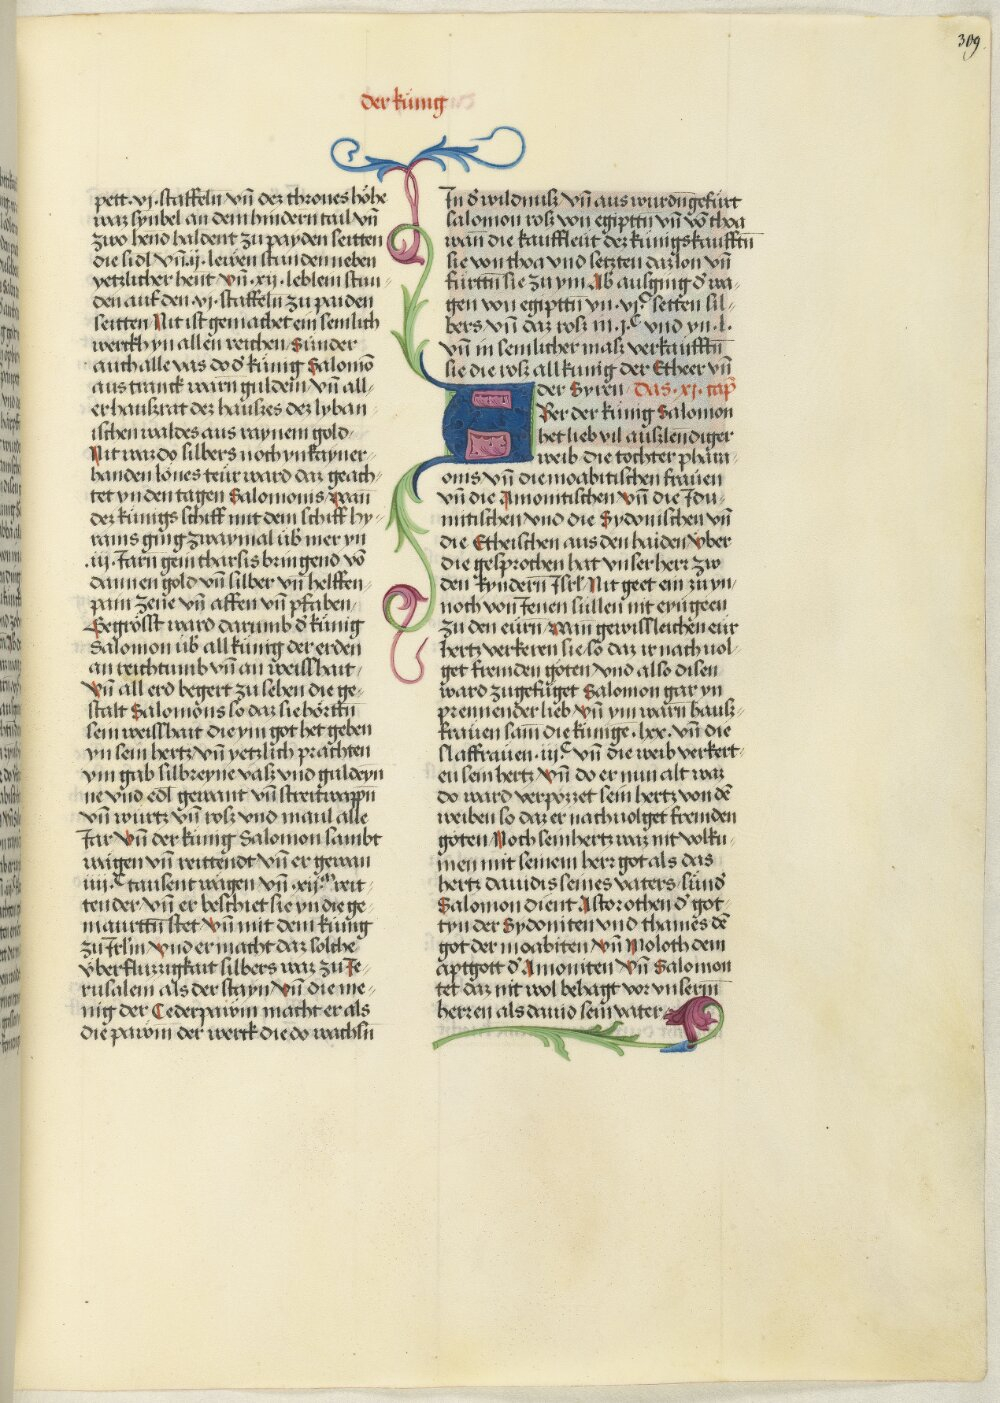 309.
der künig
pett ·vj· staffeln vn̄ dez thrones höhe
waz synbel an dem hindern tail vn̄
zwo hend haldent zu payden seitten
die sidl vn̄ ·ij· lewen stunden neben
yetzlicher hent vn̄ ·xij· leblein stun
den auf den ·vj· staffeln zu paiden
seitten Nit ist gemachet ein semlich
werckh yn allen reichen Sunder
auch alle vas do d̾ künig Salomō
aus tranck warn guldein vn̄ all
er hauszrat dez hauszes dez lyban
ischen waldes aus raynem gold
Nit waz do silbers noch ynkayner
handen lones teur ward daz geach
tet yn den tagen Salomonis wan̄
dez künigs schiff mit dem schiff hy
rams ging zwaymal üb̾ mer yn
·iij· Jarn gem tharsis bringend vō
dannen gold vn̄ silber vn̄ helffen
pain zene vn̄ affen vn̄ pfaben
Gegrösst ward darumb d̾ künig
Salomon üb̾ all künig der erden
an reichtumb vn̄ an weisshait
Vn̄ all erd begert zu sehen die ge
stalt Salomons so daz sie hörttn̄
sein weisshait die ym got het geben
yn sein hertz vn̄ yetzlich prachten
ym gab silbreyne vasz vnd guldeyn
ne vnd edl gewant vn̄ streitwappn̄
vn̄ wurtz vn̄ rosz vnd maul alle
Jar Vn̄ der künig Salomon sambt
wägen vn̄ reittendt vn̄ er gewan
iiii·ᶜ tausent wägen vn̄ ·xij·ᵐ reit
tender vn̄ er beschiet sie yn die ge
maurttn̄ stet Vn̄ mit dem künig
zu Jrl̄m Vnd er macht daz solche
vberfluzzigkait silbers waz zu Je
rusalem als der stayn Vn̄ die me
nig der Cederpawm macht er als
die pawm der werck die do wachsn̄
In d̾ wildnusz vn̄ aus wurdn̄ gefürt
salomon rosz von egipttn̄ vn̄ vō thoa
wan die kauffleüt dez künigs kaufftn̄
sie von thoa vnd setzten daz lon vn̄
fürttn̄ sie zu ym Ab̾ ausging d̾ wa
gen von egipttn̄ vn̄ ·vj·ᶜ setten sil
bers vn̄ daz rosz m·j·ᶜ vnd yn·l·
vn̄ in semlicher masz verkaufftn̄
sie die rosz all künig der Etheer vn̄
der Syren Das ·xj· cap̄
Aber der künig Salomon
het lieb vil auszlendiger
weib die tochter phara
onis vn̄ die moabitischen frauen
vn̄ die Amonitischen vn̄ die Jdu
mitischen vnd die Sydonischen vn̄
die Etheischen aus den haiden vber
die gesprochen hat vnser herr zw
den kyndern̄ Jsrl̄ Nit geet ein zu yn
noch von Jenen süllen nit eyngeen
zu den eürn wan̄ gewissleichen eür
hertz verkeren sie so daz ir nach uol
get fremden göten vnd also disen
ward zugefüget Salomon gar yn
prennender lieb vn̄ ym warn hausz
frauen sam die künige ·lxx· vn̄ die
slaffrauen ·iij·ᶜ vn̄ die weib verkert
en sein hertz Vn̄ do er nun alt waz
do ward verpözzet sein hertz von dē
weiben so daz er nachuolget fremden
göten Noch sein hertz waz nit volku
men mit seinem herz got als das
hertz dauidis seines vaters sund̾
Salomon dient Astorothen d̾ got
tyn der Sydoniten vnd thames dē
got der moabiten vn̄ Moloth dem
aptgott d̾ Amoniten Vn̄ Salomon
tet daz nit wol behagt vor vnserm
herzen als dauid sein vater